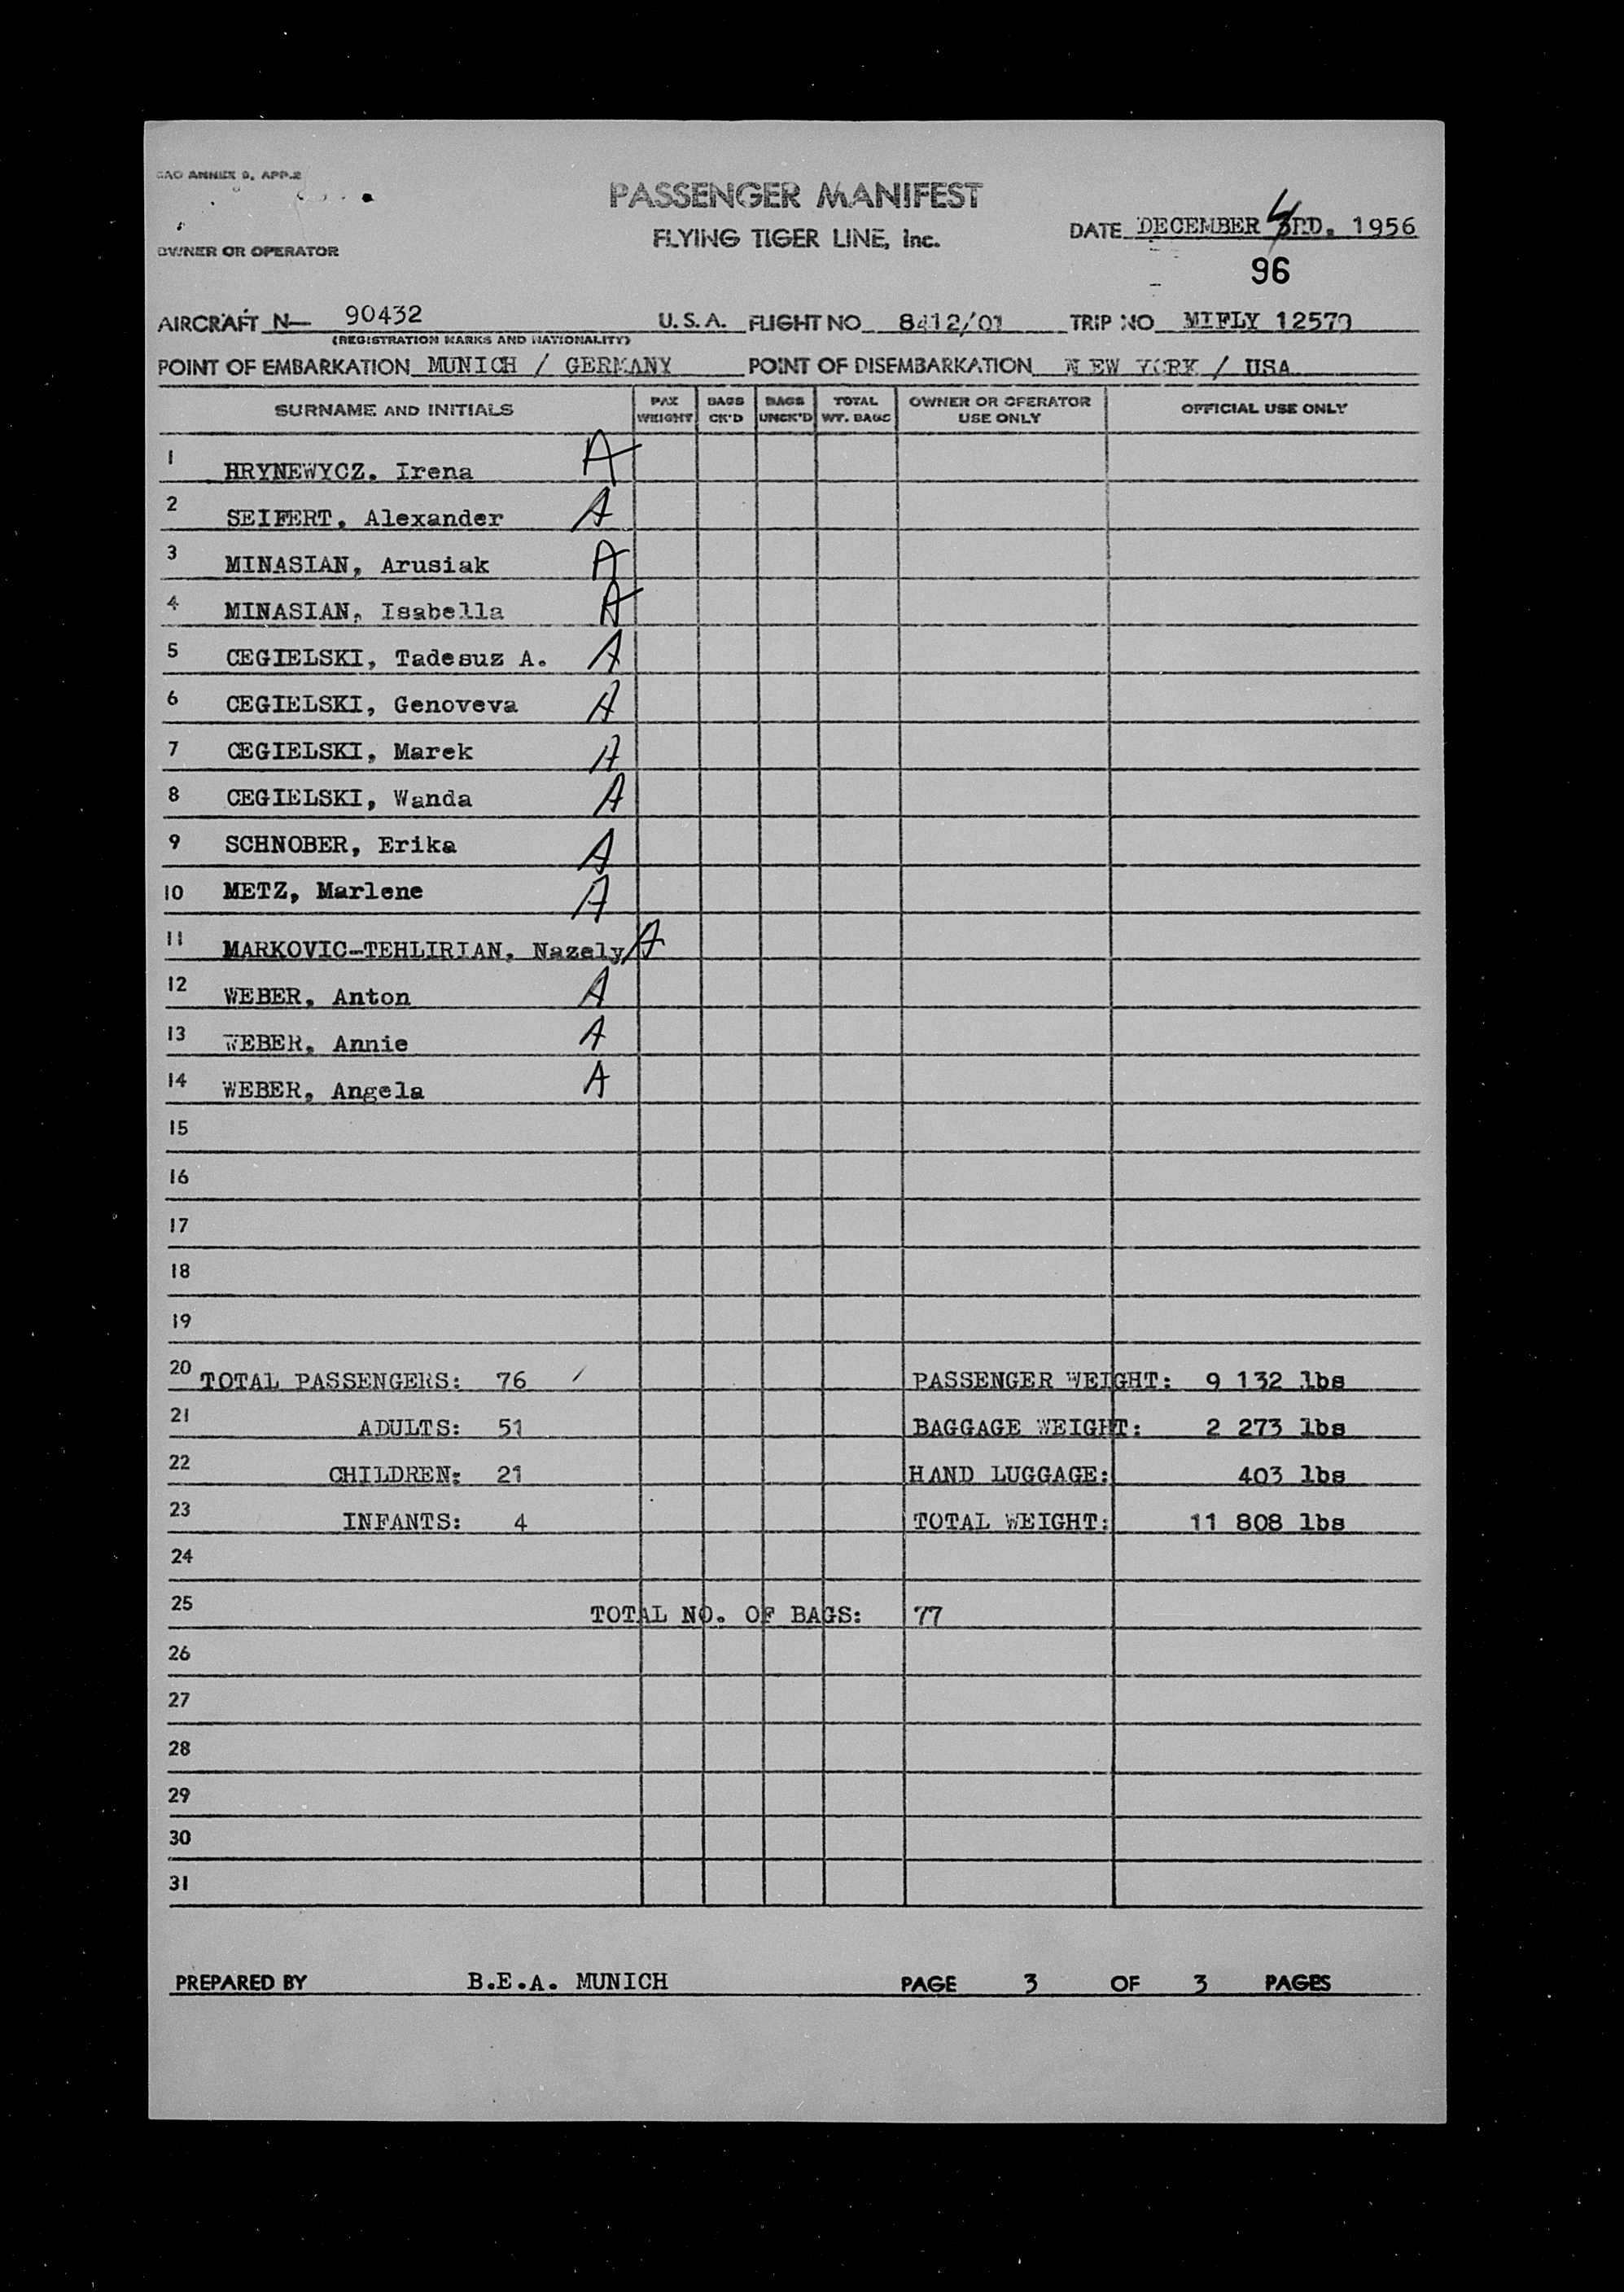 ICAO ANNEX 9, APP.2
PASSENGER MANIFEST
FLYING TIGER LINE, Inc.
DATE DECEMBER 4 3RD. 1956
OWNER OR OPERATOR
96
AIRCRAFT N— 90432 U.S.A. FLIGHT NO 8412/01 TRIP NO MIFLY 12579
(REGISTRATION MARKS AND NATIONALITY)
POINT OF EMBARKATION MUNICH / GERMANY POINT OF DISEMBARKATION NEW YORK / USA
SURNAME AND INITIALS PAX WEIGHT BAGS CK'D BAGS UNCK'D TOTAL WT. BAGS OWNER OR OPERATOR USE ONLY OFFICIAL USE ONLY
1 HRYNEWYCZ. Irena A
2 SEIFERT, Alexander A
3 MINASIAN, Arusiak A
4 MINASIAN, Isabella A
5 CEGIELSKI, Tadesuz A. A
6 CEGIELSKI, Genoveva A
7 CEGIELSKI, Marek A
8 CEGIELSKI, Wanda A
9 SCHNOBER, Erika A
10 METZ, Marlene A
11 MARKOVIC-TEHLIRIAN, Nazely A
12 WEBER, Anton A
13 WEBER, Annie A
14 WEBER, Angela A
15
16
17
18
19
20 TOTAL PASSENGERS: 76 PASSENGER WEIGHT: 9 132 lbs
21 ADULTS: 51 BAGGAGE WEIGHT: 2 273 lbs
22 CHILDREN: 21 HAND LUGGAGE: 403 lbs
23 INFANTS: 4 TOTAL WEIGHT: 11 808 lbs
24
25 TOTAL NO. OF BAGS: 77
26
27
28
29
30
31
PREPARED BY B.E.A. MUNICH PAGE 3 OF 3 PAGES